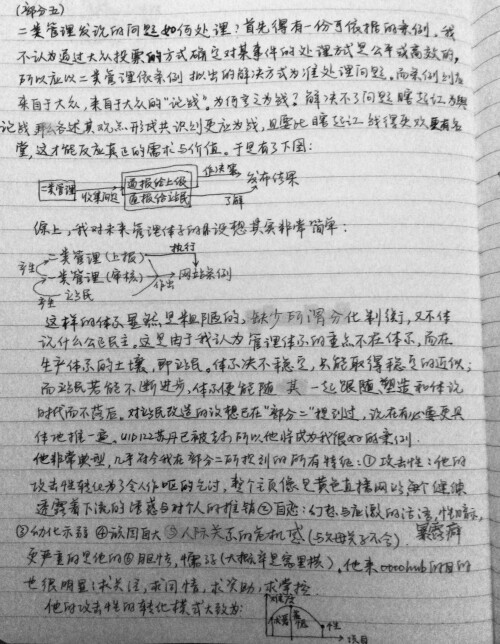 (部分五)
二类管理发说的问题如何处理?首先得有一份可依据的条例。我
不认为通过大众投票的方式确定对某事件的处理方式是公平或高效的,
所以应以二类管理依条例拟出的解决方式为准处理问题。而条例则应
来自于大众,来自于大众的“论战”。为何定之为战?解决不了问题瞎起讧为舆
论战 各述其观点形成共识则更应为战,且要比瞎起讧战得更欢更有名
堂,这才能反应真正的需求与价值。于是有了下图:
二类管理 收集问题 通报给上级 作决策 发布结果
通报给站民 了解
综上,我对未来管理体系的设想其实非常简单:
产生 二类管理(上报) 执行
一类管理(审核) 网站条例
产生 站民 作出
这样的体系显然是粗陋的,缺少所谓分化制衡,又不体
说什么公正民主。这是由于我认为管理体系的重点不在体系,而在
生产体系的土壤,即站民。体系决不稳定,只能取得稳定的近似;
而站民若能不断进步,体系便能随其一起跟随塑造和体说
时代而不落后。对站民改造的设想已在“部分二”提到过,说在有必要更具
体地推一遍。UID122苏丹已被封所以他将成为我很好的案例。
他非常典型,几乎符合我在部分二所提到的所有特征:①攻击性:他的
攻击性转化为了令人作呕的乞讨,整个主页像是黄色直播网站每个键缝
透露着下流的诱惑与对个人的推销②自恋:幻想与应激的话语,性暗示,
暴露癖
③幼化示弱④故因自大⑤人际关系的危机感(与父母关系不合)
更严重的是他的⑥胆怯,懦弱(大概率是窝里横)。他来ottohub的目的
也很明显:求关注,求同情,求资助,求掌控
他的攻击性的转化模式大致为:
性